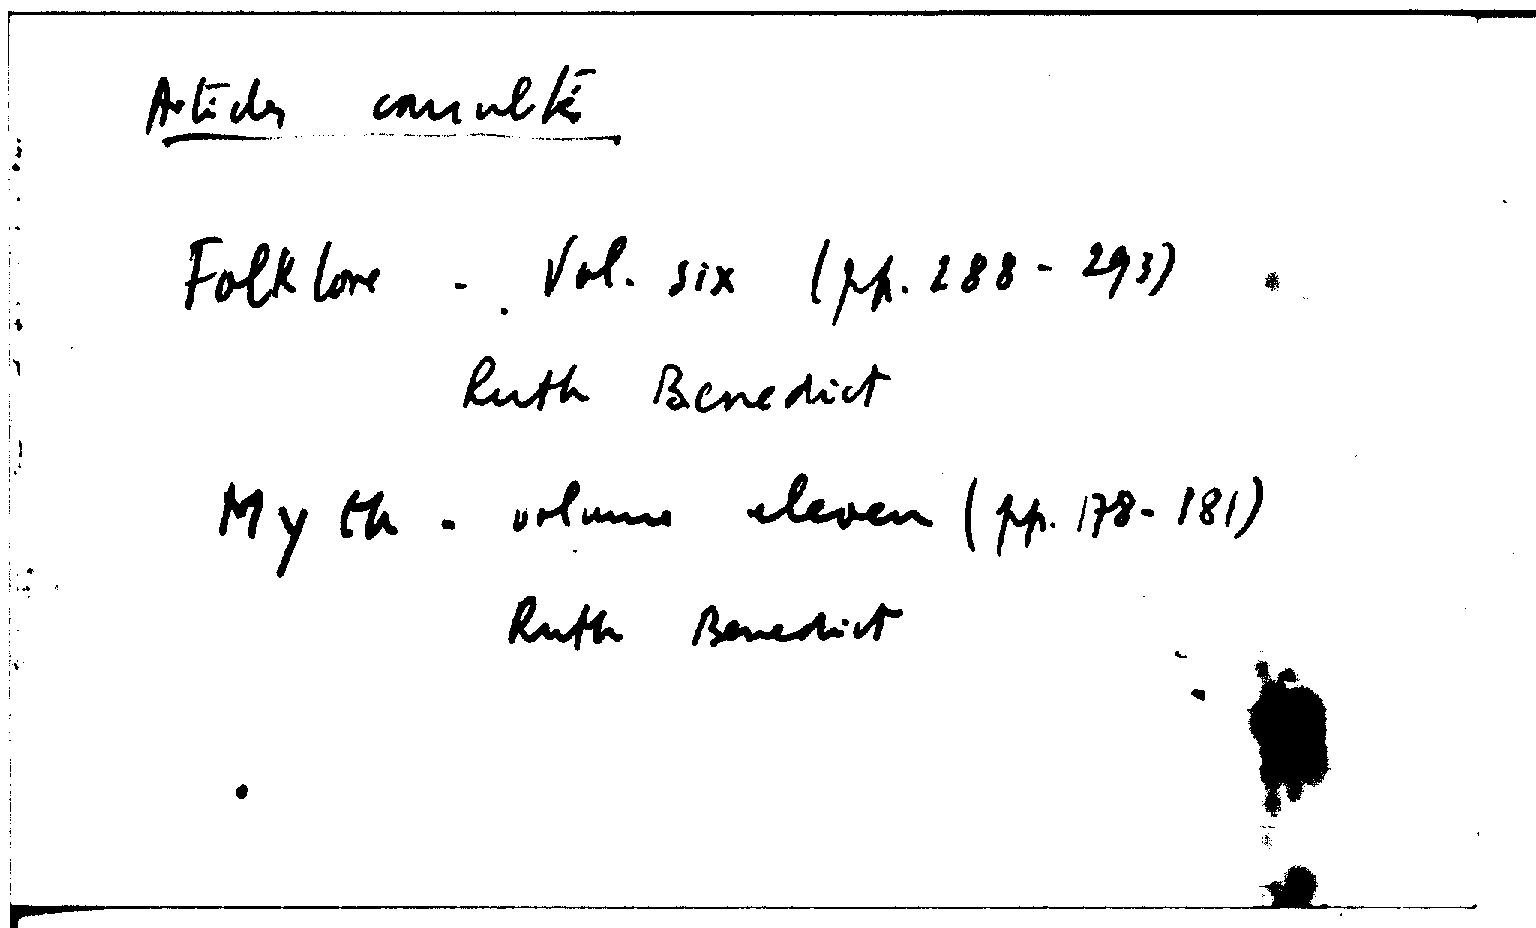 Articles consultés
Folklore - Vol. six (pp. 288 - 293)
Ruth Benedict
Myth - volume eleven (pp. 178 - 181)
Ruth Benedict